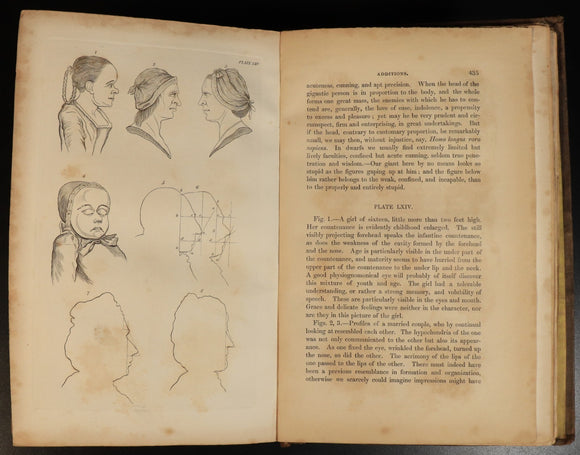 PLATE LXIV
1
2
3
4
5
6
7
ADDITIONS. 435
acuteness, cunning, and apt precision. When the head of the
gigantic person is in proportion to the body, and the whole
forms one great mass, the enemies with which he has to con-
tend are, generally, the love of ease, indolence, a propensity
to excess and pleasure; yet may he be very prudent and cir-
cumspect, firm and enterprising, in great undertakings. But
if the head, contrary to customary proportion, be remarkably
small, we may then, without injustice, say, Homo longus raro
sapiens. In dwarfs we usually find extremely limited but
lively faculties, confined but acute cunning, seldom true pene-
tration and wisdom.—Our giant here by no means looks so
stupid as the figures gaping up at him; and the figure below
him rather belongs to the weak, confined, and incapable, than
to the properly and entirely stupid.
PLATE LXIV.
Fig. 1.—A girl of sixteen, little more than two feet high.
Her countenance is evidently childhood enlarged. The still
visibly projecting forehead speaks the infantine countenance,
as does the weakness of the cavity formed by the forehead
and the nose. Age is particularly visible in the under part of
the countenance, and maturity seems to have hurried from the
upper part of the countenance to the under lip and the neck.
A good physiognomonical eye will probably of itself discover
this mixture of youth and age. The girl had a tolerable
understanding, or rather a strong memory, and volubility of
speech. These are particularly visible in the eyes and mouth.
Grace and delicate feelings were neither in the character, nor
are they in this picture of the girl.
Figs. 2, 3.—Profiles of a married couple, who by continual
looking at resembled each other. The hypochondria of the
one was not only communicated to the other but also its appear-
ance. As one fixed the eye, wrinkled the forehead, turned up
the nose, as did the other. The acrimony of the lips of the
one passed to the lips of the other. There must indeed have
been a previous resemblance in formation and organization,
otherwise we scarcely could imagine impressions might have